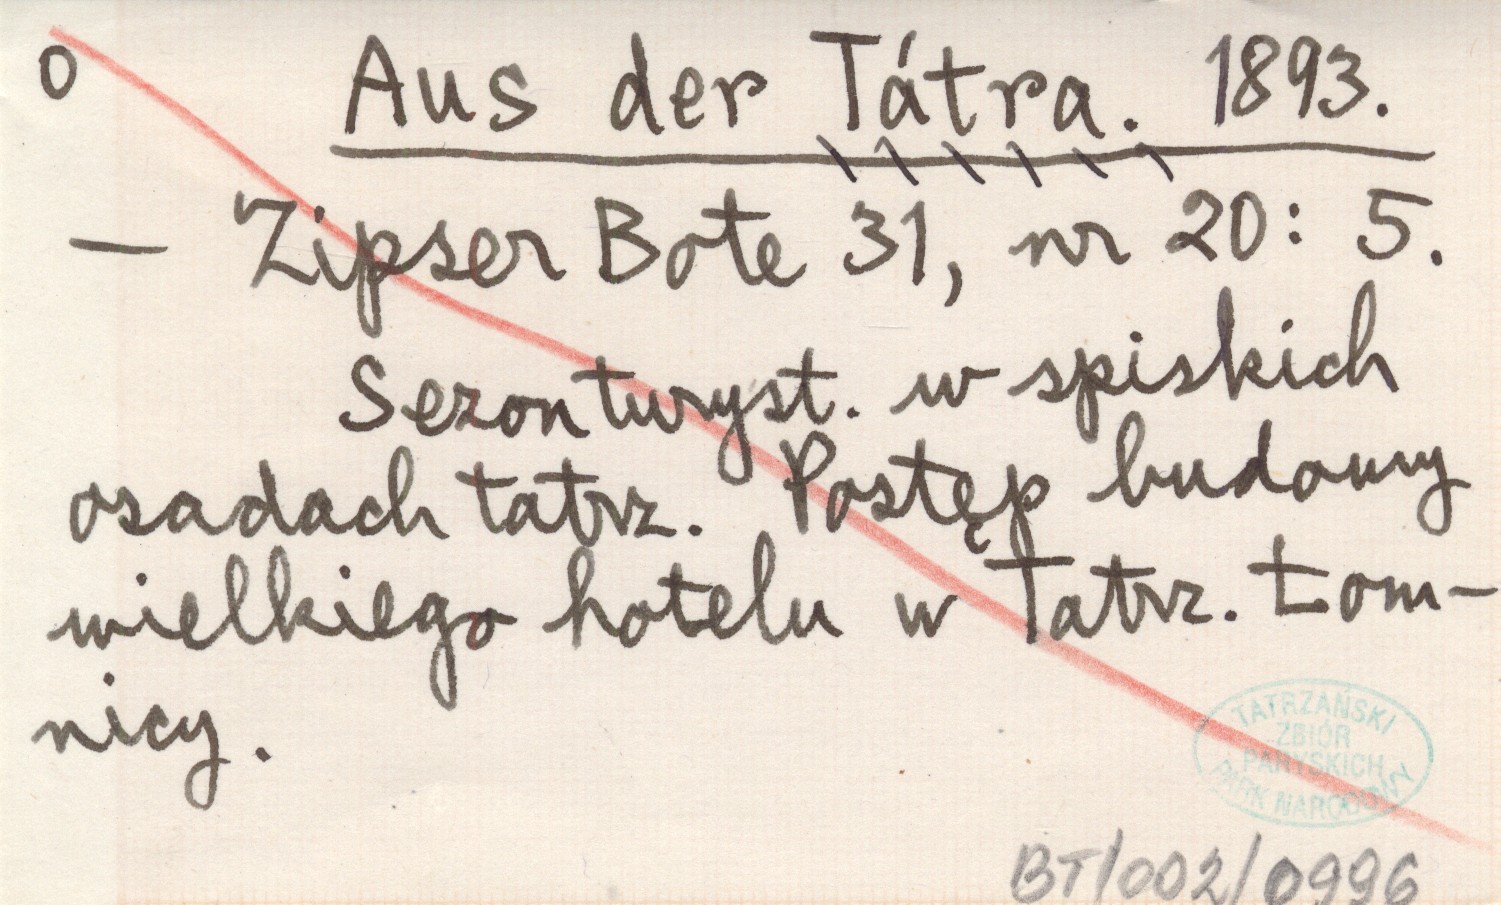 o Aus der Tátra. 1893.
— Zipser Bote 31, nr 20: 5.
Sezon turyst. w spiskich
osadach tatrz. Postęp budowy
wielkiego hotelu w Tatrz. Łom-
nicy.
TATRZAŃSKI
ZBIÓR
PARYSKICH
PARK NARODOWY
BT/002/0996